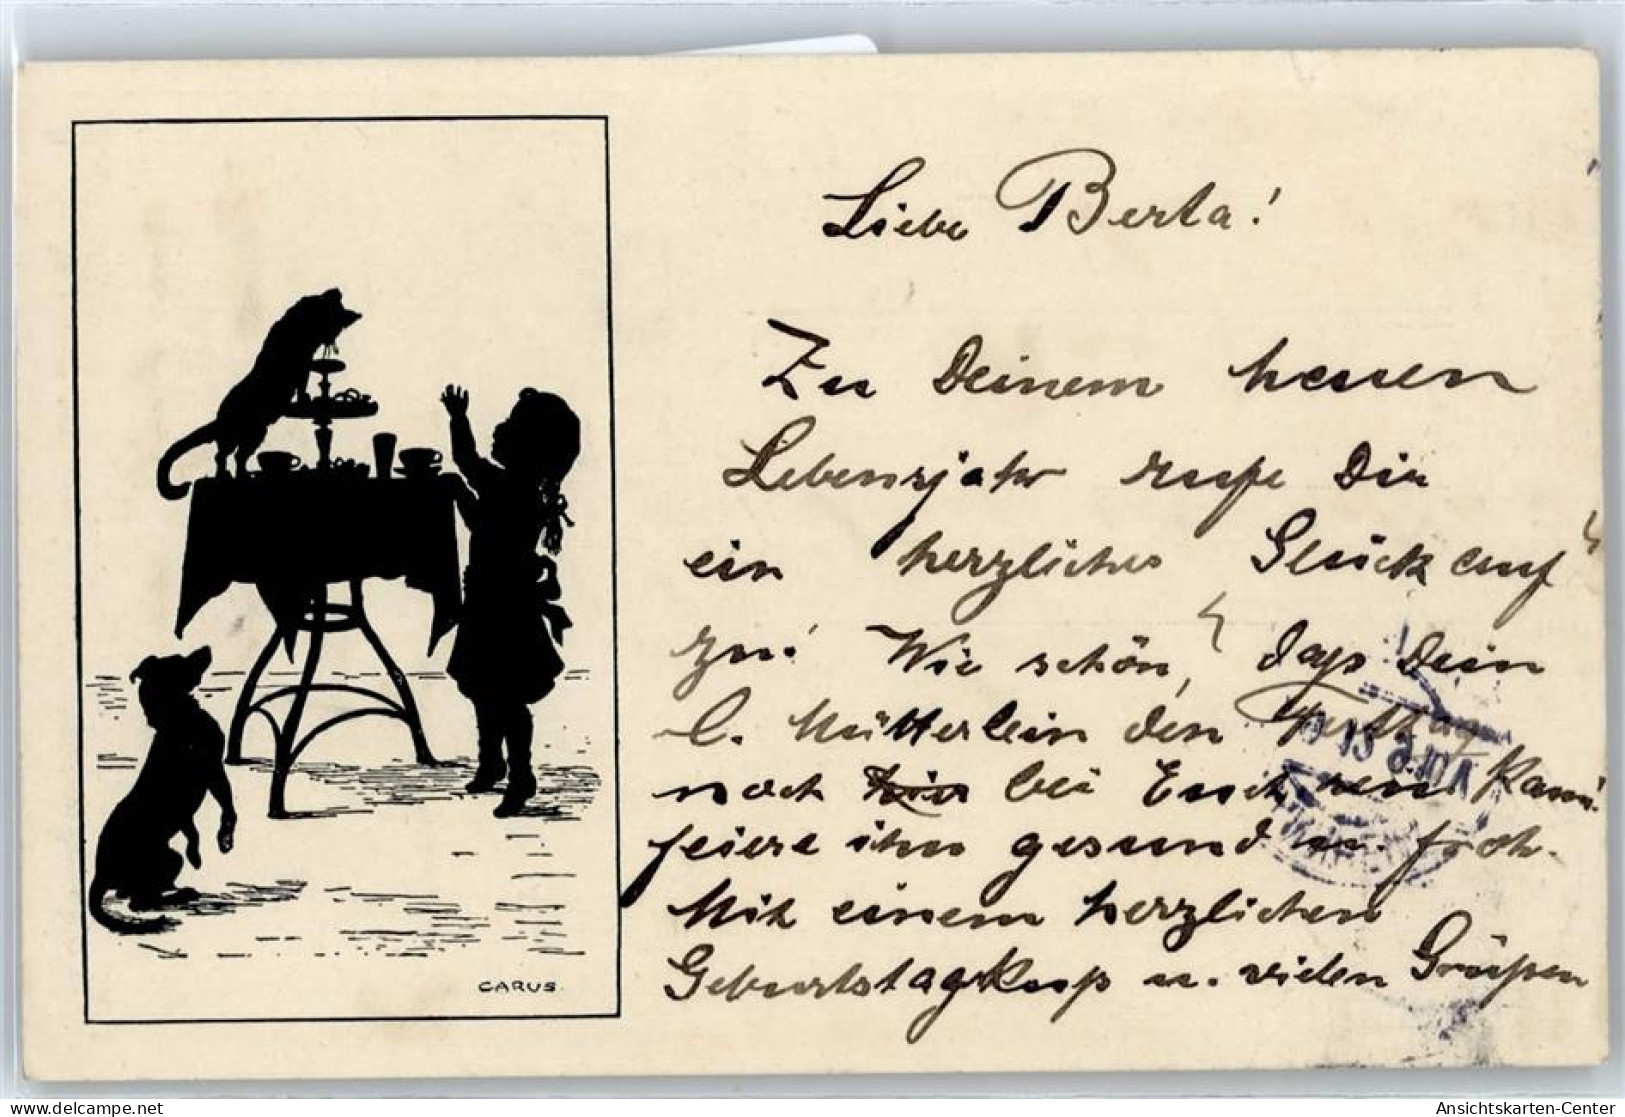 Liebe Berta!
Zu Deinem neuen
Lebensjahr rufe Dir
ein herzliches Glück auf
zu! Wie schön, daß Dein
l. Mütterlein den Festtag
noch bei Euch sein kann!
feiere ihn gesund u. froh.
Mit einem herzlichen
Geburtstagskuß u. vielen Grüßen
CARUS
Ansichtskarten-Center